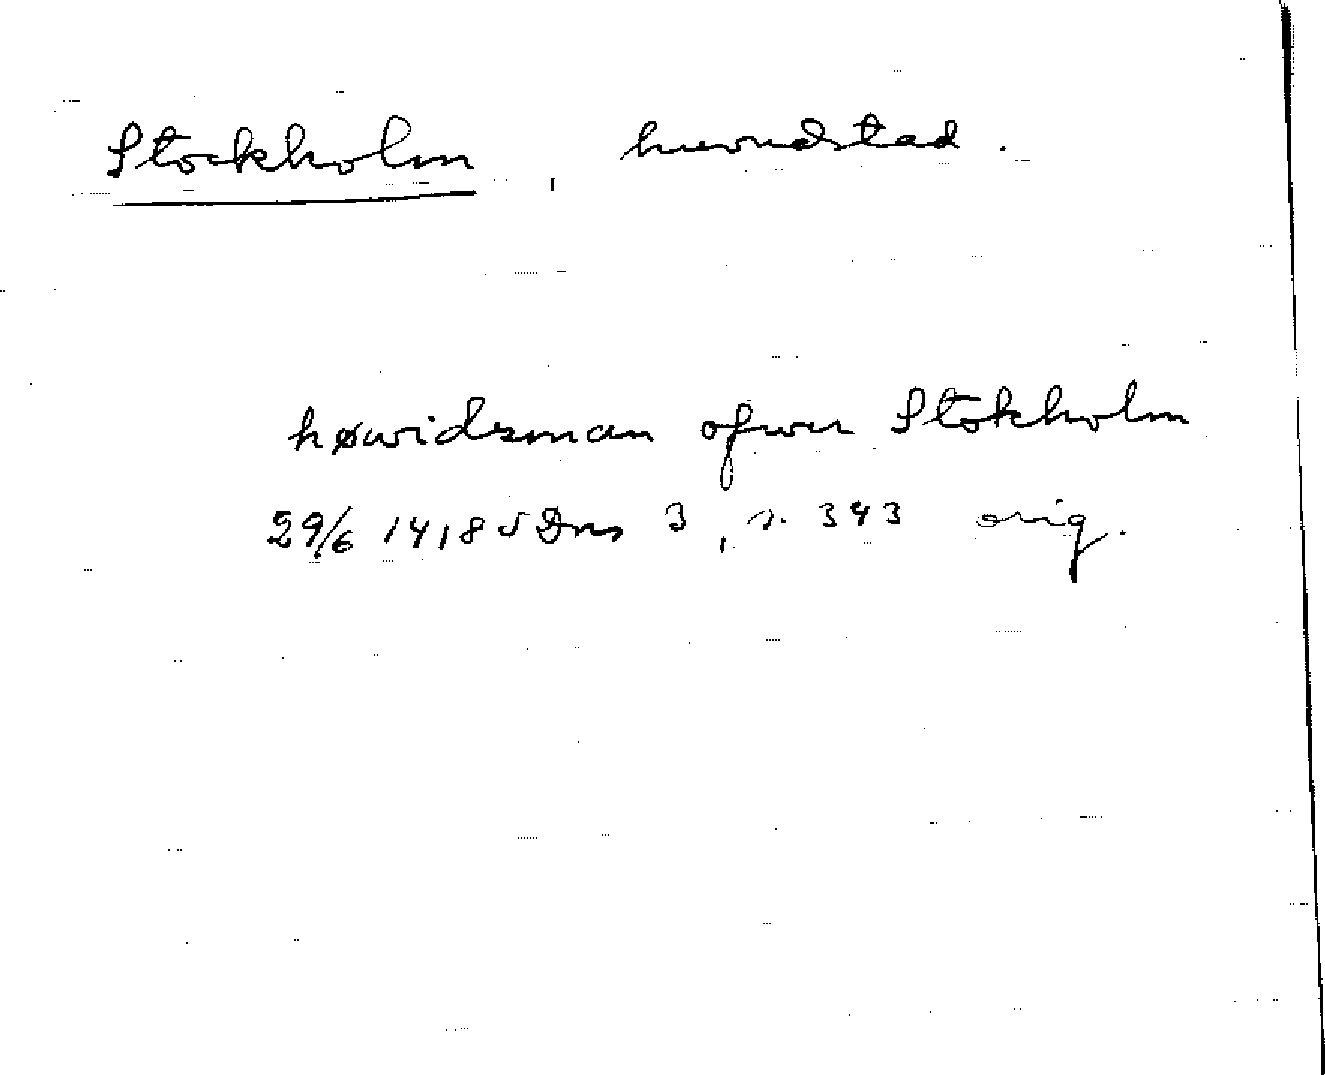 Stockholm, huvudstad.
høwidzman ofwer Stokholm
29/6 1418 SDns 3, s. 393 orig.